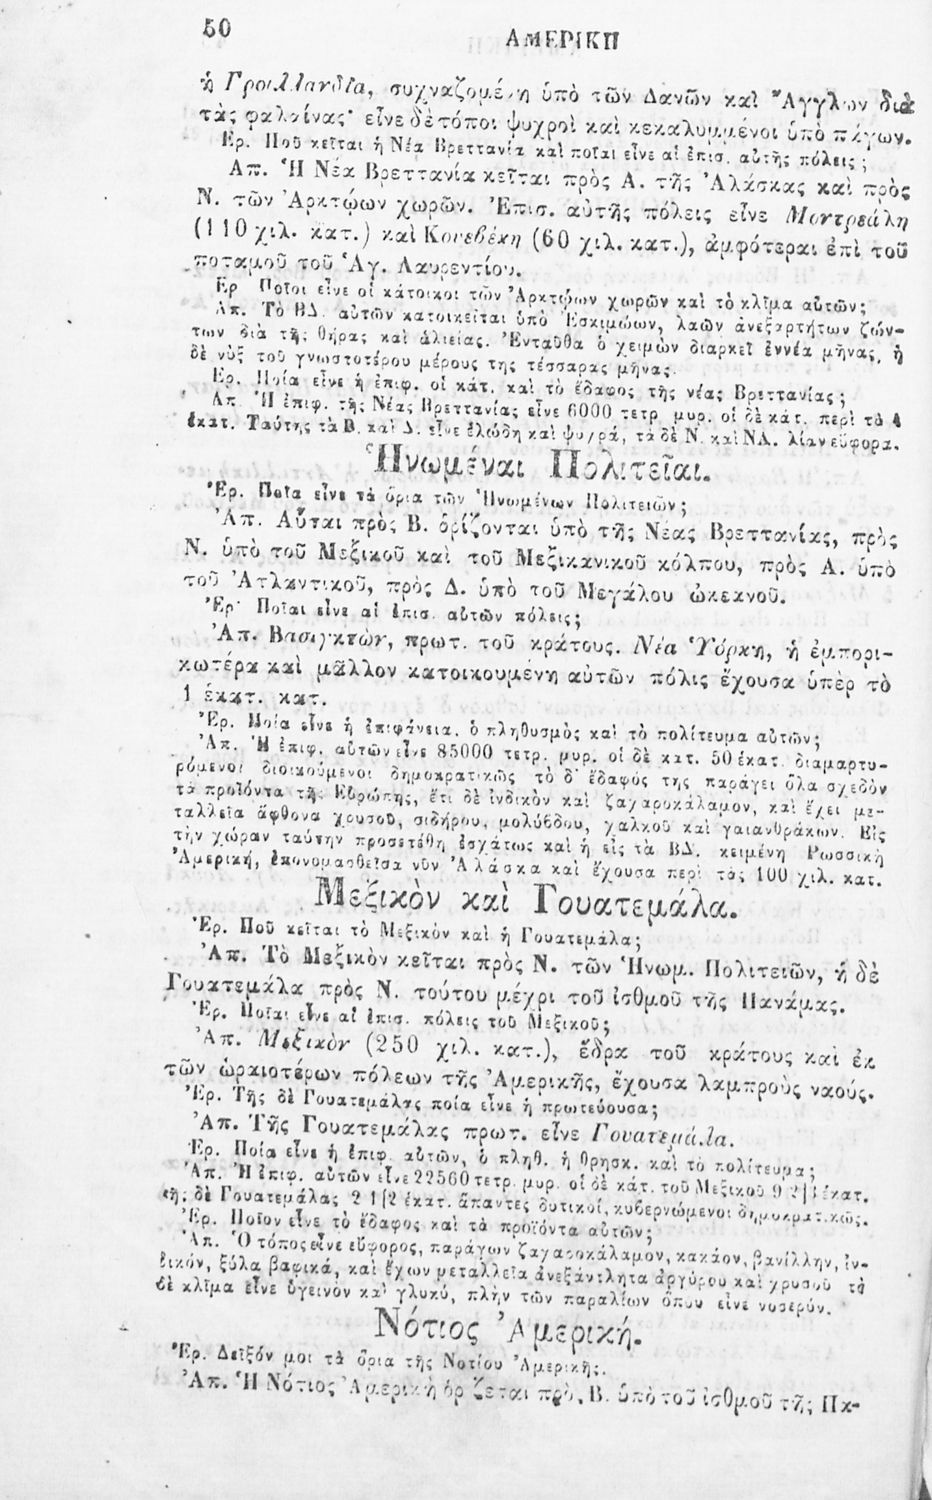 50
ΑΜΕΡΙΚΗ
ἡ Γροιλλανδία, συχναζομένη ὑπὸ τῶν Δανῶν καὶ Ἄγγλων διὰ
τὰς φαλαίνας· εἶνε δὲ τόποι ψυχροὶ καὶ κεκαλυμμένοι ὑπὸ πάγων.
Ἐρ. Ποῦ κεῖται ἡ Νέα Βρεττανία καὶ ποῖαι εἶνε αἱ ἐπισ. αὐτῆς πόλεις;
Απ. Ἡ Νέα Βρεττανία κεῖται πρὸς Α. τῆς Ἀλάσκας καὶ πρὸς
Ν. τῶν Ἀρκτῴων χωρῶν. Ἐπισ. αὐτῆς πόλεις εἶνε Μοντρεάλη
(110 χιλ. κατ.) καὶ Κουεβέκη (60 χιλ. κατ.), ἀμφότεραι ἐπὶ τοῦ
ποταμοῦ τοῦ Ἁγ. Λαυρεντίου.
Ἐρ Ποῖοι εἶνε οἱ κάτοικοι τῶν Ἀρκτῴων χωρῶν καὶ τὸ κλῖμα αὐτῶν;
Ἀπ. Τὸ ΒΔ. αὐτῶν κατοικεῖται ὑπὸ Ἐσκιμώων, λαῶν ἀνεξαρτήτων ζών-
των διὰ τῆς θήρας καὶ ἁλιείας. Ἐνταῦθα ὁ χειμὼν διαρκεῖ ἐννέα μῆνας, ἡ
δὲ νὺξ τοῦ γνωστοτέρου μέρους της τέσσαρας μῆνας.
Ἐρ. Ποία εἶνε ἡ ἐπιφ. οἱ κάτ. καὶ τὸ ἔδαφος τῆς νέας Βρεττανίας;
Ἀπ. Ἡ ἐπιφ. τῆς Νέας Βρεττανίας εἶνε 6000 τετρ. μυρ. οἱ δὲ κάτ. περὶ τὰ 4
ἑκατ. Ταύτης τὰ Β. καὶ Δ. εἶνε ἑλώδη καὶ ψυχρά, τὰ δὲ Ν. καὶ ΝΑ. λίαν εὔφορα.
Ἡνωμέναι Πολιτεῖαι.
Ἐρ. Ποῖα εἶνε τὰ ὅρια τῶν Ἡνωμένων Πολιτειῶν;
Ἀπ. Αὗται πρὸς Β. ὁρίζονται ὑπὸ τῆς Νέας Βρεττανίας, πρὸς
Ν. ὑπὸ τοῦ Μεξικοῦ καὶ τοῦ Μεξικανικοῦ κόλπου, πρὸς Α. ὑπὸ
τοῦ Ἀτλαντικοῦ, πρὸς Δ. ὑπὸ τοῦ Μεγάλου ὠκεανοῦ.
Ἐρ· Ποῖαι εἶνε αἱ ἐπισ. αὐτῶν πόλεις;
Ἀπ. Βασιγκτών, πρωτ. τοῦ κράτους. Νέα Ὑόρκη, ἡ ἐμπορι-
κωτέρα καὶ μᾶλλον κατοικουμένη αὐτῶν πόλις ἔχουσα ὑπὲρ τὸ
1 ἑκατ. κατ.
Ἐρ. Ποία εἶνε ἡ ἐπιφάνεια, ὁ πληθυσμὸς καὶ τὸ πολίτευμα αὐτῶν;
Ἀπ. Ἡ ἐπιφ. αὐτῶν εἶνε 85000 τετρ. μυρ. οἱ δὲ κατ. 50 ἑκατ. διαμαρτυ-
ρόμενοι διοικούμενοι δημοκρατικῶς τὸ δ' ἔδαφός της παράγει ὅλα σχεδὸν
τὰ προϊόντα τῆς Εὐρώπης, ἔτι δὲ ἰνδικὸν καὶ ζαχαροκάλαμον, καὶ ἔχει με-
ταλλεῖα ἄφθονα χρυσοῦ, σιδήρου, μολύβδου, χαλκοῦ καὶ γαιανθράκων. Εἰς
τὴν χώραν ταύτην προσετέθη ἐσχάτως καὶ ἡ εἰς τὰ ΒΔ. κειμένη Ρωσσικὴ
Ἀμερική, ἐπονομασθεῖσα νῦν Ἀλάσκα καὶ ἔχουσα περὶ τὰς 100 χιλ. κατ.
Μεξικὸν καὶ Γουατεμάλα.
Ἐρ. Ποῦ κεῖται τὸ Μεξικὸν καὶ ἡ Γουατεμάλα;
Ἀπ. Τὸ Μεξικὸν κεῖται πρὸς Ν. τῶν Ἡνωμ. Πολιτειῶν, ἡ δὲ
Γουατεμάλα πρὸς Ν. τούτου μέχρι τοῦ ἰσθμοῦ τῆς Πανάμας.
Ἐρ. Ποῖαι εἶνε αἱ ἐπισ. πόλεις τοῦ Μεξικοῦ;
Ἀπ. Μεξικὸν (250 χιλ. κατ.), ἕδρα τοῦ κράτους καὶ ἐκ
τῶν ὡραιοτέρων πόλεων τῆς Ἀμερικῆς, ἔχουσα λαμπροὺς ναούς.
Ἐρ. Τῆς δὲ Γουατεμάλας ποία εἶνε ἡ πρωτεύουσα;
Ἀπ. Τῆς Γουατεμάλας πρωτ. εἶνε Γουατεμάλα.
Ἐρ. Ποία εἶνε ἡ ἐπιφ. αὐτῶν, ὁ πληθ. ἡ θρησκ. καὶ τὸ πολίτευμα;
Ἀπ. Ἡ ἐπιφ. αὐτῶν εἶνε 22560 τετρ. μυρ. οἱ δὲ κάτ. τοῦ Μεξικοῦ 9 2|3 ἑκατ.
τῆς δὲ Γουατεμάλας 2 1|2 ἑκατ. ἅπαντες δυτικοί, κυβερνώμενοι δημοκρατικῶς.
Ἐρ. Ποῖον εἶνε τὸ ἔδαφος καὶ τὰ προϊόντα αὐτῶν;
Ἀπ. Ὁ τόπος εἶνε εὔφορος, παράγων ζαχαροκάλαμον, κακάον, βανίλλην, ἰν-
δικόν, ξύλα βαφικά, καὶ ἔχων μεταλλεῖα ἀνεξάντλητα ἀργύρου καὶ χρυσοῦ τὸ
δὲ κλῖμα εἶνε ὑγεινὸν καὶ γλυκύ, πλὴν τῶν παραλίων ὅπου εἶνε νοσερόν.
Νότιος Ἀμερική.
Ἐρ. Δεῖξόν μοι τὰ ὅρια τῆς Νοτίου Ἀμερικῆς.
Ἀπ. Ἡ Νότιος Ἀμερικὴ ὁρίζεται πρὸς Β. ὑπὸ τοῦ ἰσθμοῦ τῆς Πα-